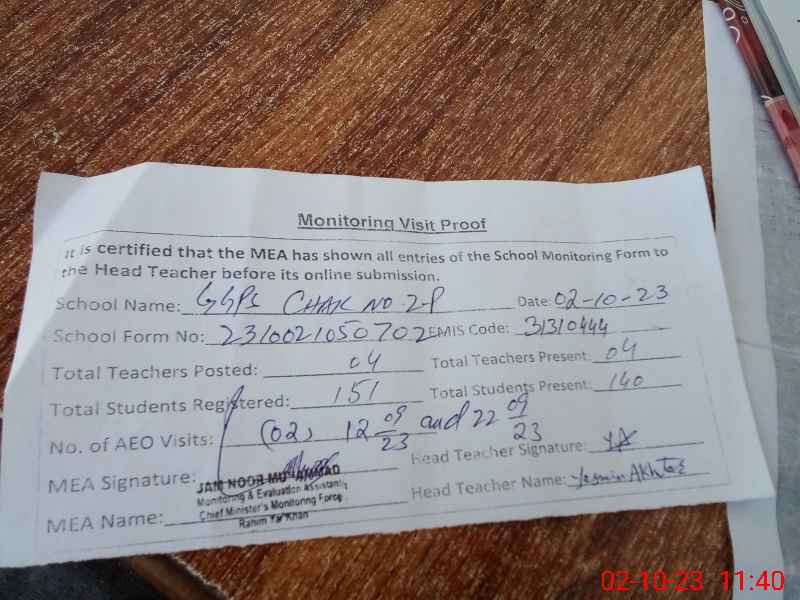 Monitoring Visit Proof
It is certified that the MEA has shown all entries of the School Monitoring Form to
the Head Teacher before its online submission.
School Name: GGPS CHAK NO 2-P Date: 02-10-23
School Form No: 231002105070 2 EMIS Code: 31310444
Total Teachers Posted: 04 Total Teachers Present: 04
Total Students Registered: 151 Total Students Present: 140
No. of AEO Visits: (02) 12 09/23 and 22 09/23
MEA Signature: Head Teacher Signature: YA
JAM NOOR MUHAMMAD
Monitoring & Evaluation Assistant
Chief Minister's Monitoring Force
Rahim Yar Khan
MEA Name: Head Teacher Name: Yasmin AKhtar
02-10-23 11:40